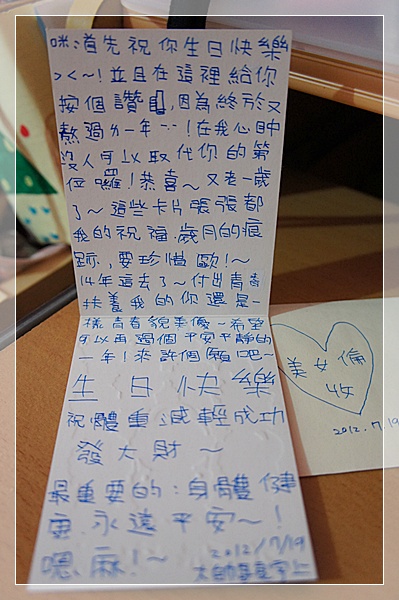 咪:首先祝你生日快樂
><~!並且在這裡給你
按個讚,因為終於又
熬過ㄌ一年…!在我心目中
沒人可以取代你的第
一位囉!恭喜~又老一歲
了~這些卡片張張都
我的祝福,歲月的痕
跡,要珍惜歐!~
14年過去了~付出青春
扶養我的你還是一
樣青春貌美優~希望
可以再過個平安平靜的
一年!來許個願吧~
生日快樂
祝體重減輕成功
發大財~
最重要的:身體健
康永遠平安~!
嗯麻!~
2012/7/19
上
美女倫
收
2012.7.19